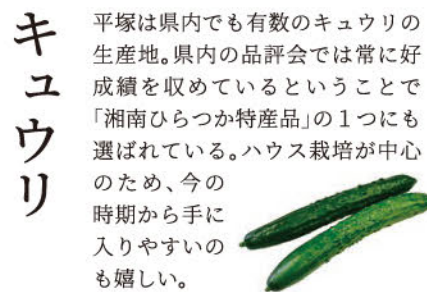 キュウリ
平塚は県内でも有数のキュウリの
生産地。県内の品評会では常に好
成績を収めているということで
「湘南ひらつか特産品」の1つにも
選ばれている。ハウス栽培が中心
のため、今の
時期から手に
入りやすいの
も嬉しい。